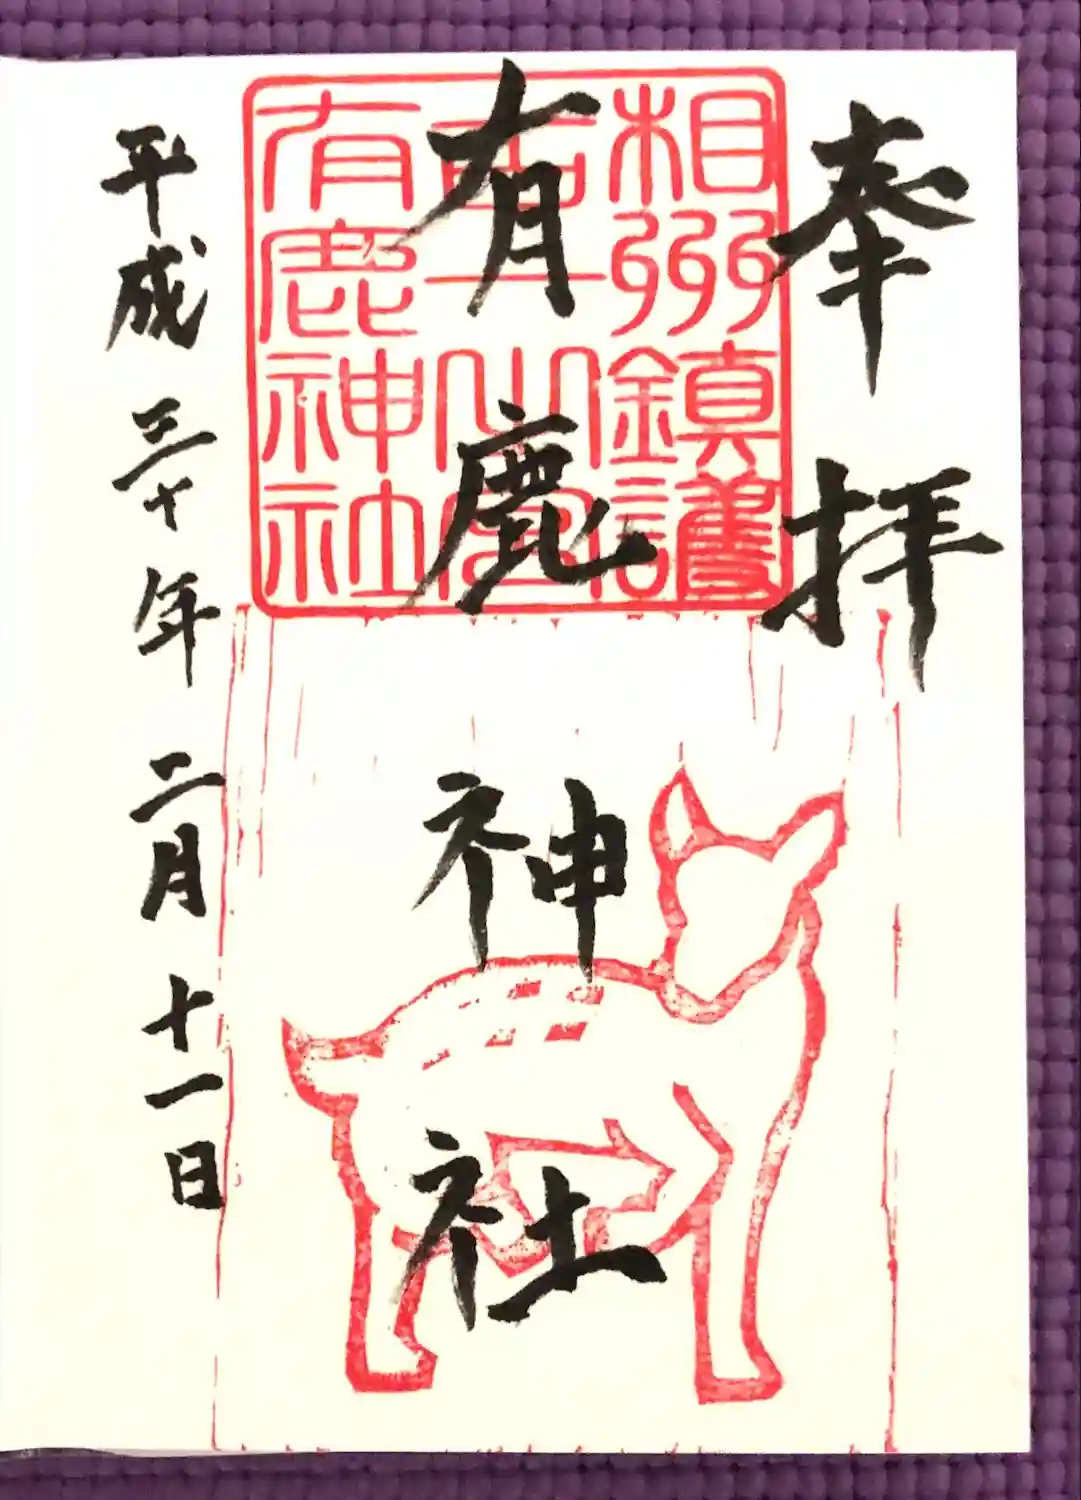 奉拝
相州鎮護
有鹿神社
有鹿神社
平成三十年二月十一日